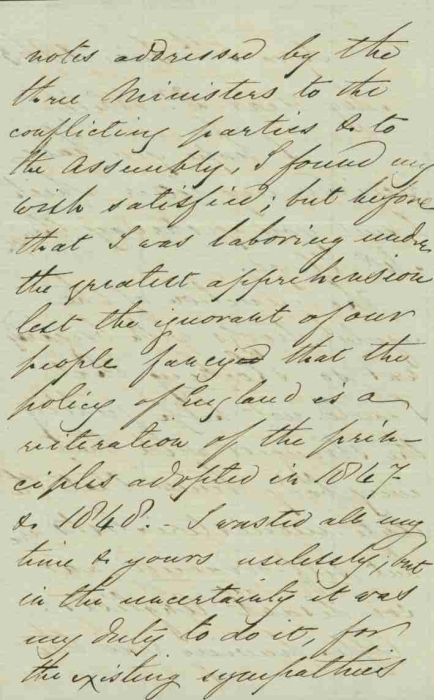 notes addressed by the
three Ministers to the
conflicting parties & to
the Assembly, I found my
wish satisfied; but before
that I was laboring under
the greatest apprehension
lest the ignorant of our
people fancied that the
policy of England is a
reiteration of the prin-
ciples adopted in 1847
& 1848. - I wasted all my
time & yours uselessly, but
in the uncertainty it was
my duty to do it, for
the existing sympathies